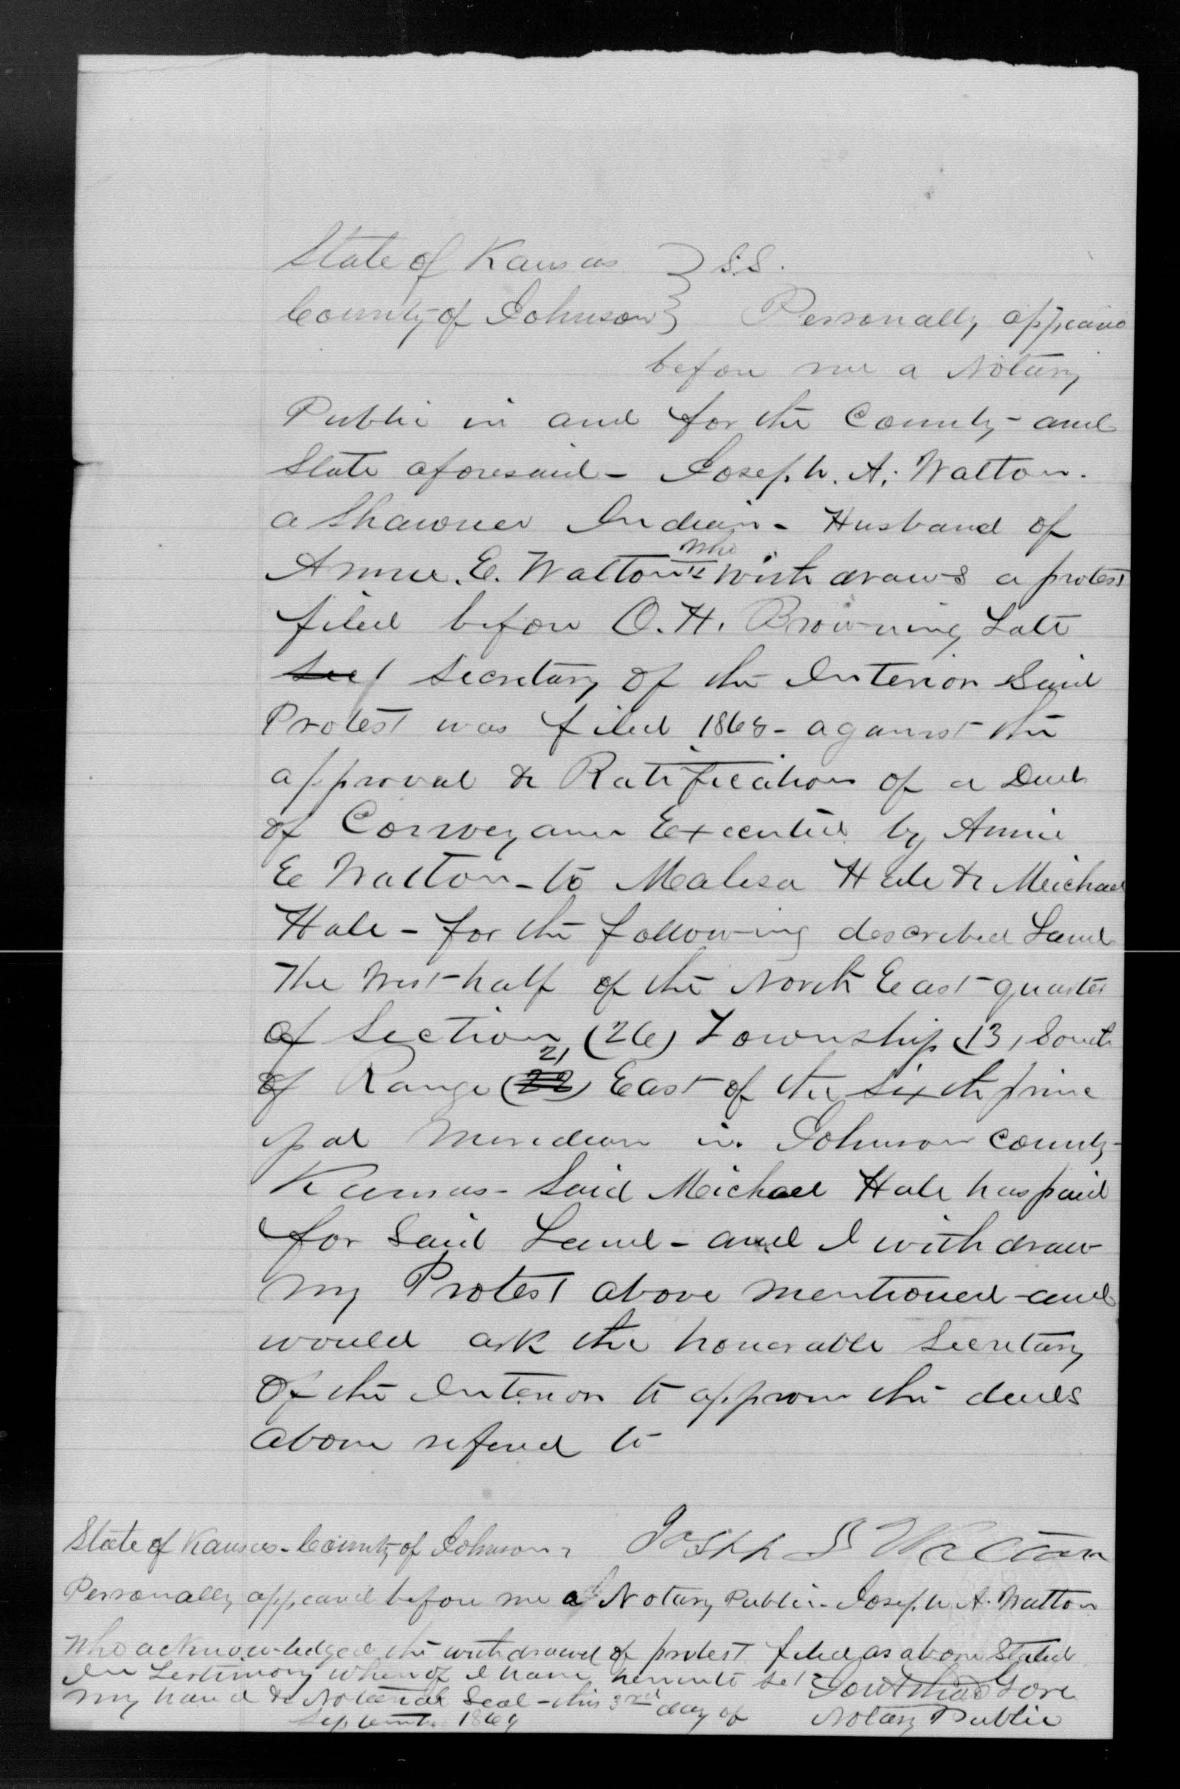 State of Kansas } S.S.
County of Johnson } Personally appeared
before me a Notary
Public in and for the County and
State aforesaid - Joseph. A. Walton.
a Shawnee Indian - Husband of
Annie. E. Walton who withdraws a protest
filed before O. H. Browning Late
Sec Secretary of the Interior Said
Protest was filed 1868 - against the
approval & Ratification of a Deed
of Conveyance Executed by Annie
E Walton - to Malisa Hale & Meichael
Hale - for the following described Land
The West half of the North East quarter
of Section (26) Township (13) South
of Range (22) 21 East of the sixth princ
ipal Meridian in Johnson County
Kansas - Said Meichael Hale has paid
for Said Land - and I withdraw
my Protest above mentioned - and
would ask the honorable Secretary
Of the Interior to approve the deeds
above refered to
Joseph Walton
State of Kansas - County of Johnson,
Personally appeared before me a Notary Public - Joseph A. Walton
Who acknowledged the withdrawal of protest filed as above Stated
In Testimony whereof I have hereunto set
my hand & Notarial Seal - this 3rd day of
September 1869
Gore
Notary Public